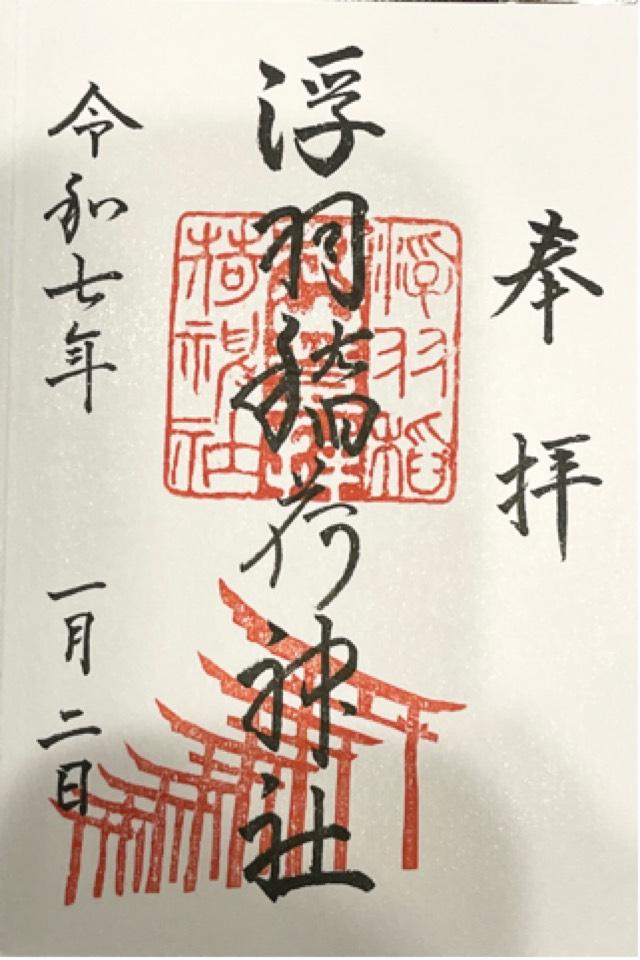 奉拝
浮羽稲荷神社
令和七年 一月二日
浮羽稲
荷神社